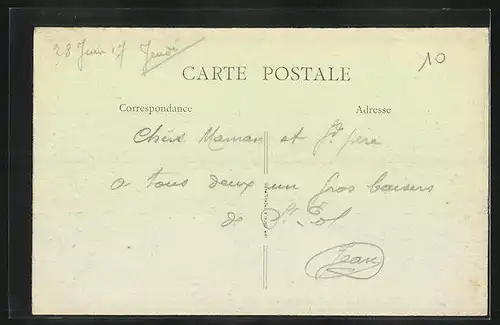 28 Juin 17 Jeudi
10
CARTE POSTALE
Correspondance
Adresse
Chers Maman et Gd père
a tous deux un gros baisers
de St Pol
Jean